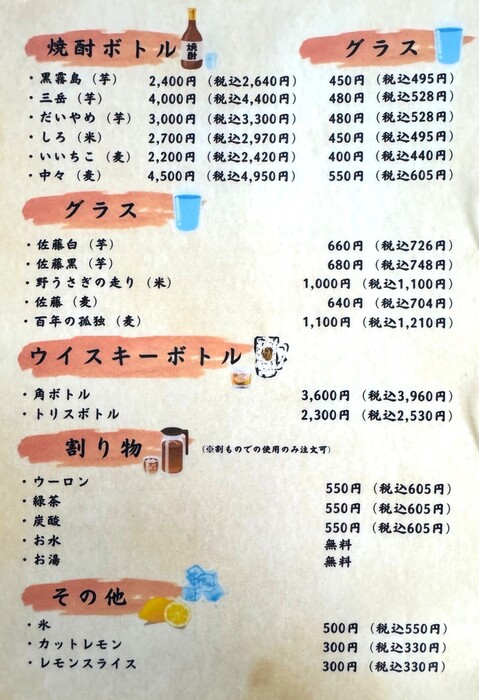 焼酎ボトル 焼酎 グラス
・黒霧島（芋） 2,400円（税込2,640円） 450円（税込495円）
・三岳（芋） 4,000円（税込4,400円） 480円（税込528円）
・だいやめ（芋） 3,000円（税込3,300円） 480円（税込528円）
・しろ（米） 2,700円（税込2,970円） 450円（税込495円）
・いいちこ（麦） 2,200円（税込2,420円） 400円（税込440円）
・中々（麦） 4,500円（税込4,950円） 550円（税込605円）
グラス
・佐藤白（芋） 660円（税込726円）
・佐藤黒（芋） 680円（税込748円）
・野うさぎの走り（米） 1,000円（税込1,100円）
・佐藤（麦） 640円（税込704円）
・百年の孤独（麦） 1,100円（税込1,210円）
ウイスキーボトル
・角ボトル 3,600円（税込3,960円）
・トリスボトル 2,300円（税込2,530円）
割り物 （※割ものでの使用のみ注文可）
・ウーロン 550円（税込605円）
・緑茶 550円（税込605円）
・炭酸 550円（税込605円）
・お水 無料
・お湯 無料
その他
・氷 500円（税込550円）
・カットレモン 300円（税込330円）
・レモンスライス 300円（税込330円）